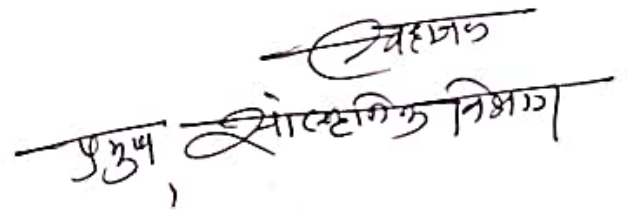 प्रमुख, सांस्कृतिक विभाग